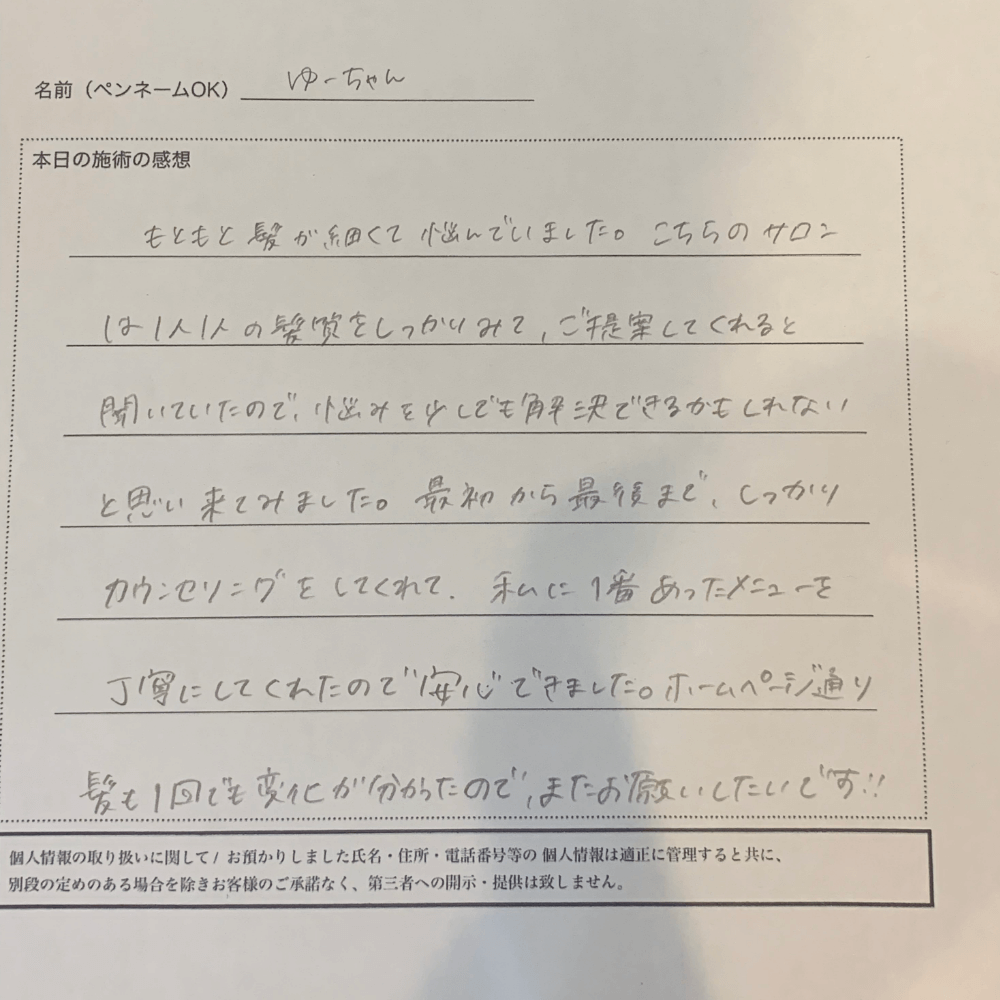 名前（ペンネームOK） ゆーちゃん
本日の施術の感想
もともと髪が細くて悩んでいました。こちらのサロン
は1人1人の髪質をしっかりみて、ご提案してくれると
聞いていたので、悩みを少しでも解決できるかもしれない
と思い来てみました。最初から最後まで、しっかり
カウンセリングをしてくれて、私に1番あったメニューを
丁寧にしてくれたので安心できました。ホームページ通り
髪も1回でも変化が分かったので、またお願いしたいです!!
個人情報の取り扱いに関して/ お預かりしました氏名・住所・電話番号等の 個人情報は適正に管理すると共に、
別段の定めのある場合を除きお客様のご承諾なく、第三者への開示・提供は致しません。